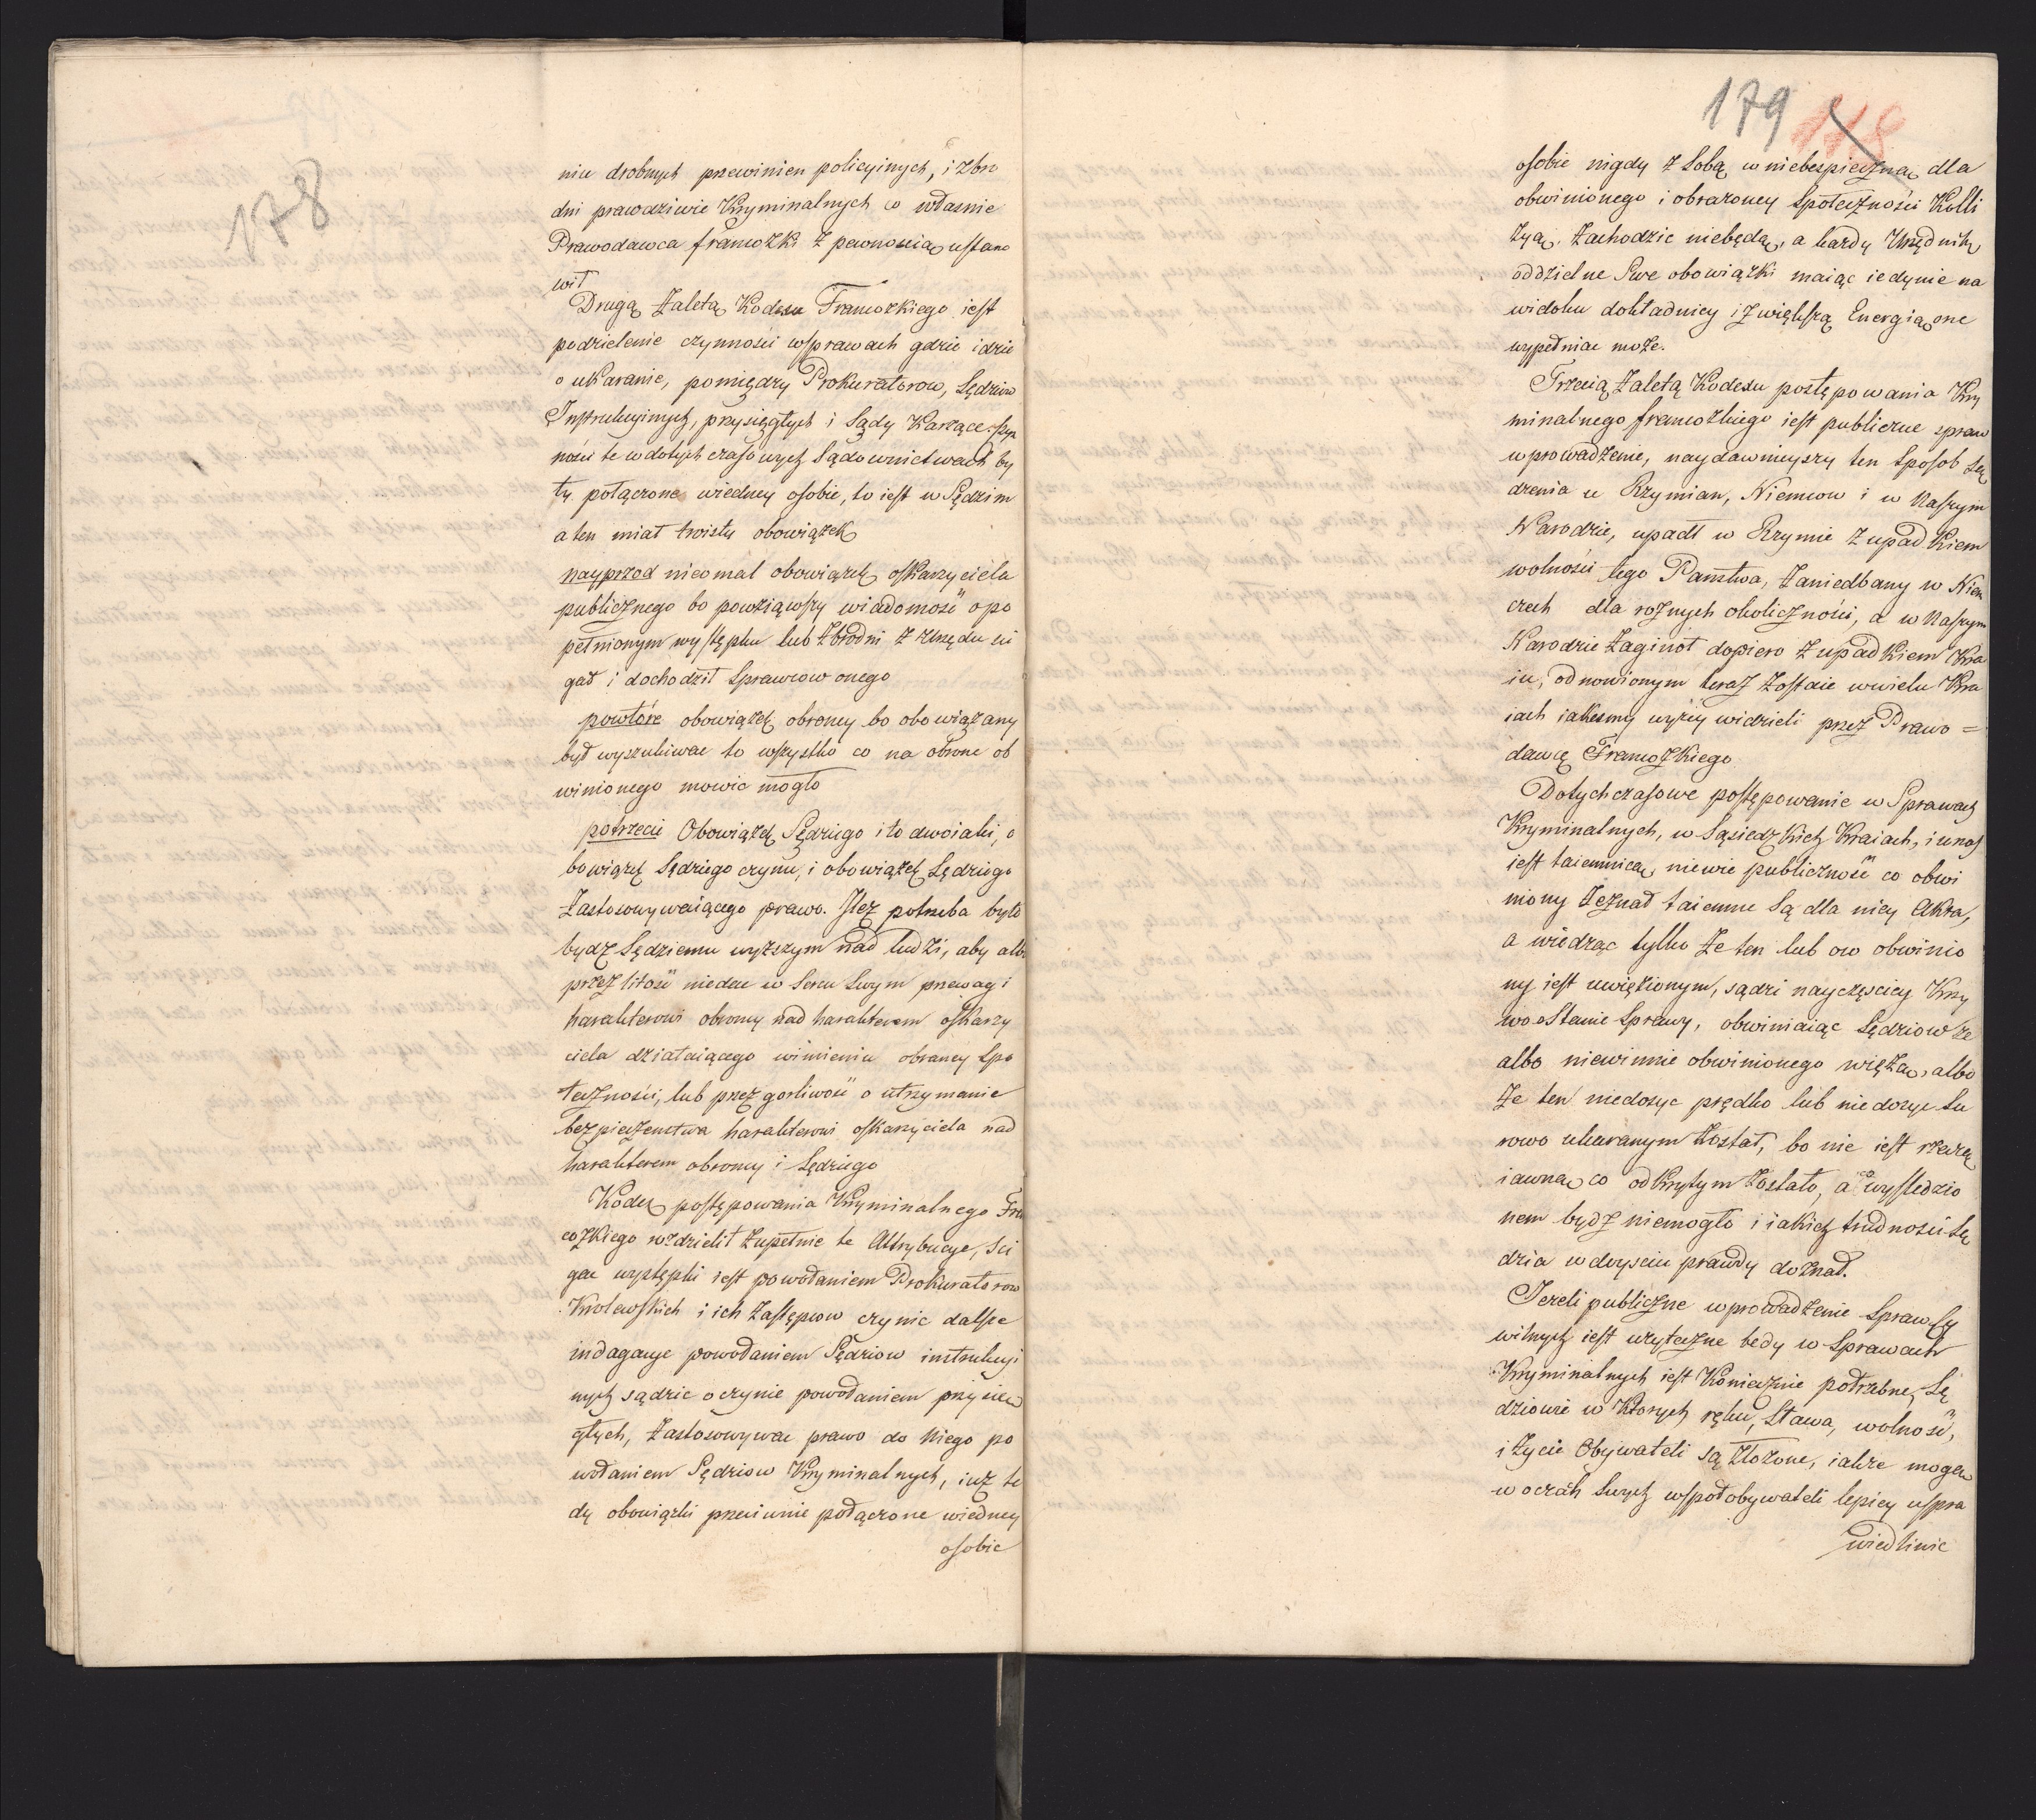 178
niu drobnych przewinien policyinych, i zbro
dni prawdziwie Kryminalnych co własnie
Prawodawca francuzki z pewnoscią ustano
wił
Drugą Zaletą Kodexu Francuzkiego iest
podzielenie czynności w sprawach gdzie idzie
o ukaranie, pomiędzy Prokuratorow, Sędziow
Instrukcyinych, przysięgłych i Sądy Karzące.
ności te w dotychczasowych Sądownictwach by
ły połączone wiedney osobie, to iest w Sędzim
a ten miał troisty obowiązek
nayprzod nieomal obowiązek oskarzyciela
publicznego bo powziąwszy wiadomość o po
pełnionym występku lub Zbrodni z Urzędu ści
gał i dochodził Sprawcow onego
powtóre obowiązek obrońcy bo obowiązany
był wyszukiwac to wszystko co na obrone ob
winionego mowic mogło
potrzecie Obowiązek Sędziego i to dwoiaki, o
bowiązek Sędziego czynu, i obowiązek Sędziego
Zastosowywaiącego prawo. Ileż potrzeba było
bydz Sędziemu wyższym nad ludzi, aby albo
przez litość niedac w Sercu Swym przewagi
harakterowi obrońcy nad harakterem oskarzy
ciela działaiącego wimieniu obrancy Spo
łeczności, lub przez gorliwość o utrzymanie
bezpieczenstwa harakterowi oskarzyciela nad
harakterem obrońcy i Sędziego
Kodex postępowania Kryminalnego Fran
cuzkiego rozdzielił zupełnie te Attrybucye, Ści
gac występki iest powołaniem Prokuratorow
Krolewskich i ich Zastępcow czynic dalsze
indagacye powołaniem Sędziow instrukcyi
nych sądzic o czynie powołaniem przysię
głych, Zastosowywac prawo do niego po
wołaniem Sędziow Kryminalnych, iuż te
dy obowiązki przeciwnie połączone wiedney
osobie
179 118
osobie nigdy z Sobą w niebezpieczną dla
obwinionego i obrażoney Społeczności Kolli
zyą Zachodzic niebędą, a kazdy Urzędnik
oddzielne Swe obowiązki maiąc iedynie na
widoku dokładniey i z większą Energią one
wypełniac może.
Trzecią Zaletą Kodexu postępowania Kry
minalnego francuzkiego iest publiczne spraw
wprowadzenie, naydawnieyszy ten Sposob Są
dzenia u Rzymian, Niemcow i w Naszym
Narodzie, upadł w Rzymie z upadkiem
wolności tego Państwa, Zaniedbany w Niem
czech dla roznych okoliczności, a w Naszym
Narodzie Zaginoł dopiero z upadkiem Kra
iu, odnowionym teraz Zostaie w wielu Kra
iach iakesmy wyżey widzieli przez Prawo=
dawcę Francuzkiego
Dotychczasowe postępowanie w Sprawach
Kryminalnych, w Sąsiedzkich Kraiach, i unas
iest taiemnicą, niewie publiczność co obwi
niony Zeznał taiemne Są dla niey Akta,
a wiedząc tylko że ten lub ow obwinio
ny iest uwięzionym, sądzi nayczęsciey Krzy
wo o Stanie Sprawy, obwiniaiąc Sędziow że
albo niewinnie obwinionego więżą, albo
że ten niedosyc prędko lub niedosyc Su
rowo ukaranym został, bo nie iest rzeczą
iawną co odkrytym Zostało, a co wysledzio
nem bydź niemogło i iakich trudności Sę
dzia w dociu prawdy doznał.
Jezeli publiczne wprowadzenie Spraw Cy
wilnych iest użyteczne tedy w Sprawach
Kryminalnych iest Koniecznie potrzebne, Sę
dziowie w Ktorych ręku, Sława, wolność,
i życie Obywateli są złożone, iakże mogą
w oczach Swych wspołobywateli lepiey uspra
wiedliwic